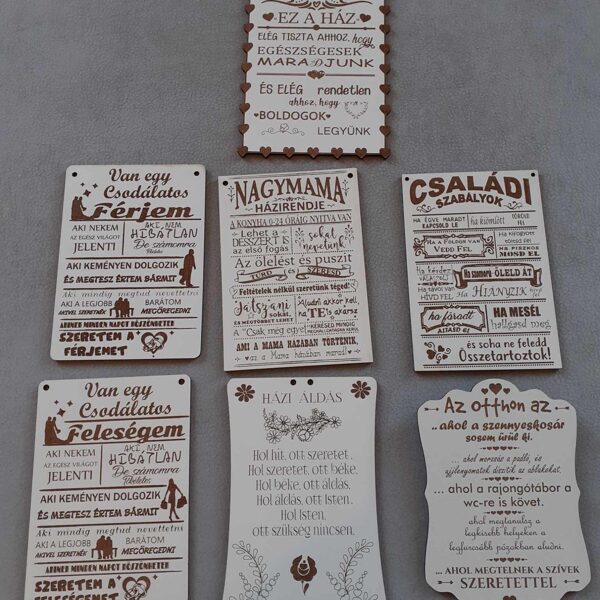 EZ A HÁZ
ELÉG TISZTA AHHOZ, hogy
EGÉSZSÉGESEK
MARADJUNK
ÉS ELÉG rendetlen
ahhoz, hogy
BOLDOGOK
LEGYÜNK
Van egy
Csodálatos
Férjem
AKI NEKEM
AZ EGÉSZ VILÁGOT
JELENTI
AKI NEM
HIBÁTLAN
De számomra
tökéletes
AKI KEMÉNYEN DOLGOZIK
ÉS MEGTESZ ÉRTEM BÁRMIT
Aki mindig megtud nevettetni
AKI A LEGJOBB
BARÁTOM
AKIVEL SZERETNÉK
MEGÖREGEDNI
AKINEK MINDEN NAPOT KÖSZÖNHETEK
SZERETEM A
FÉRJEMET
NAGYMAMA
HÁZIRENDJE
A KONYHA 0-24 ÓRÁIG NYITVA VAN
Lehet a
DESSZERT IS
az első fogás
sokat
nevetünk
Az ölelést és puszit
TŰRŐ és SZERESD
Feltételek nélkül szeretünk téged!
Játszani
sokat,
ÉS MÉGTÖBBET LEHET
Aludni akkor kell,
ha TE is akarsz
A "Csak még egyet"
KÉRÉSED MINDIG
MEGHALLGATÁSRA KERÜL
AMI A MAMA HÁZÁBAN TÖRTÉNIK,
az a Mama házában marad!
CSALÁDI
SZABÁLYOK
HA ÉGVE MARADT
KAPCSOLD LE
ha kiömlött
TÖRÖLD FEL
HA A FÖLDÖN VAN
VEDD FEL
Ha kifogyott
töltsd fel
HA PISZKOS
MOSD EL
Ha kérdez
VÁLASZOLJ
Ha szomorú ÖLELD ÁT
Ha távol van
HÍVD FEL
Ha HIÁNYZIK
ha fáradt
ALTASD EL
HA MESÉL
hallgasd meg
és soha ne feledd
Összetartoztok!
Van egy
Csodálatos
Feleségem
AKI NEKEM
AZ EGÉSZ VILÁGOT
JELENTI
AKI NEM
HIBÁTLAN
De számomra
tökéletes
AKI KEMÉNYEN DOLGOZIK
ÉS MEGTESZ ÉRTEM BÁRMIT
Aki mindig megtud nevettetni
AKI A LEGJOBB
BARÁTOM
AKIVEL SZERETNÉK
MEGÖREGEDNI
AKINEK MINDEN NAPOT KÖSZÖNHETEK
SZERETEM A
FELESÉGEMET
HÁZI ÁLDÁS
Hol hit, ott szeretet.
Hol szeretet, ott béke.
Hol béke, ott áldás.
Hol áldás, ott Isten.
Hol Isten,
ott szükség nincsen.
Az otthon az
..ahol a szennyeskosár
sosem ürül ki.
...ahol morzsás a padló, és
ujjlenyomatok díszítik az ablakokat.
... ahol a rajongótábor a
wc-re is követ.
ahol megtanulsz a
legkisebb helyeken a
legfurcsább pózokban aludni.
... AHOL MEGTELNEK A SZÍVEK
SZERETETTEL